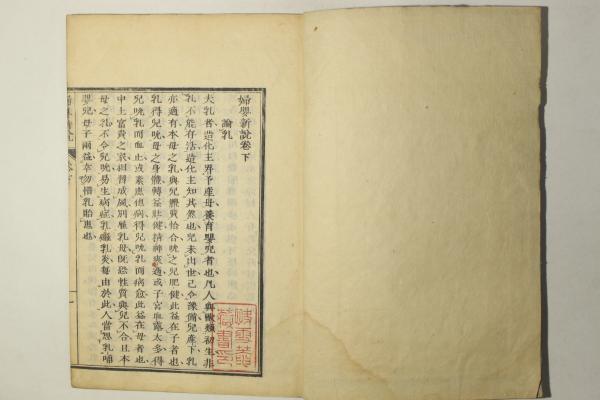 婦嬰新說卷下
論乳
夫乳者造化主畀予產母養育嬰兒者也凡人與獸類初生非
乳不能存活造化主知其然也兒未出世已令豫備兒產下乳
亦適有本母之乳與兒臟質恰合吮之兒肥健此益在子者也
乳得兒吮母之身體轉益壯健精神爽適或子宮血露太多得
兒吮乳而血止或素患他病得兒吮乳而病愈此益在母者也
中土富貴之家相習成風別雇乳母旣慮性質與兒不合且本
母之乳不令兒吮易生病症乳癰乳炎每由於此人當思乳哺
嬰兒母子兩益幸勿惜乳貽患也
藏書